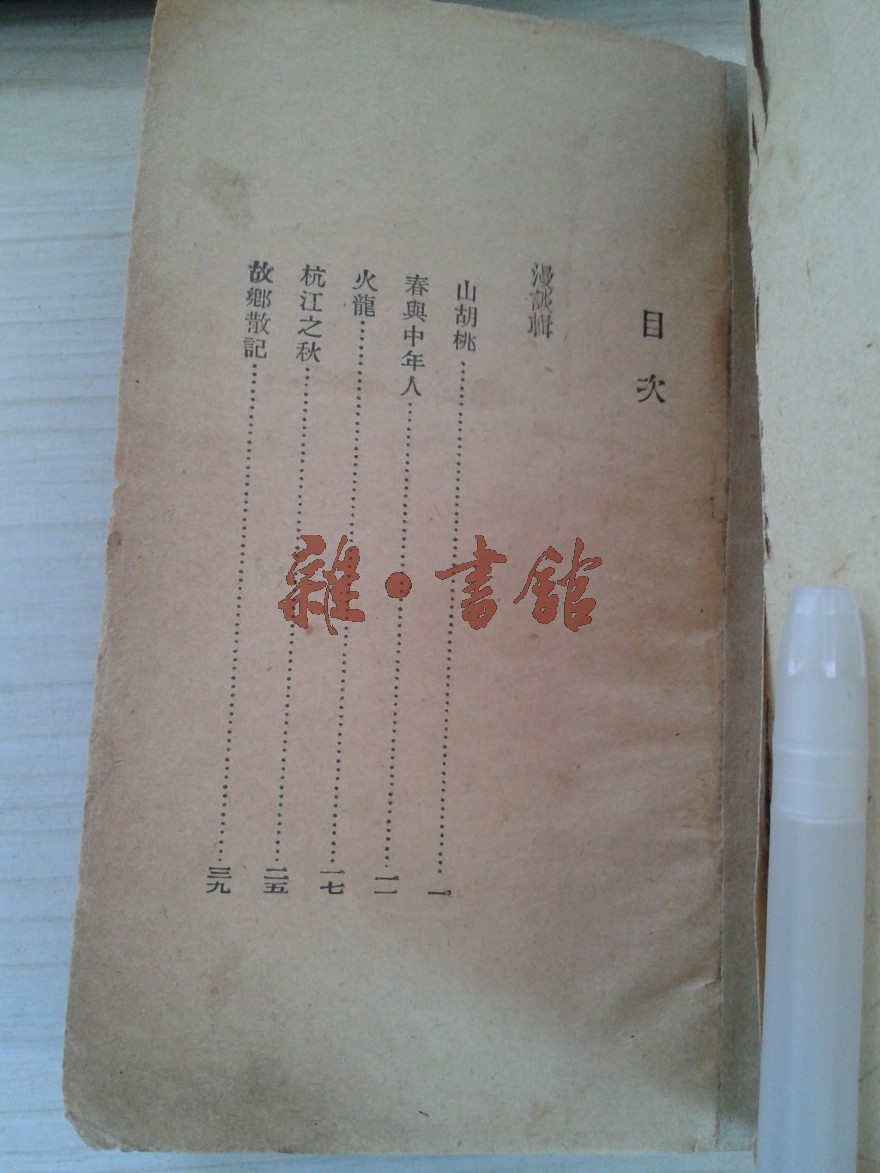 目次
漫談輯
山胡桃……………………一
春與中年人……………………一一
火龍……………………一七
杭江之秋……………………二五
故鄉散記……………………三九
雜·書館